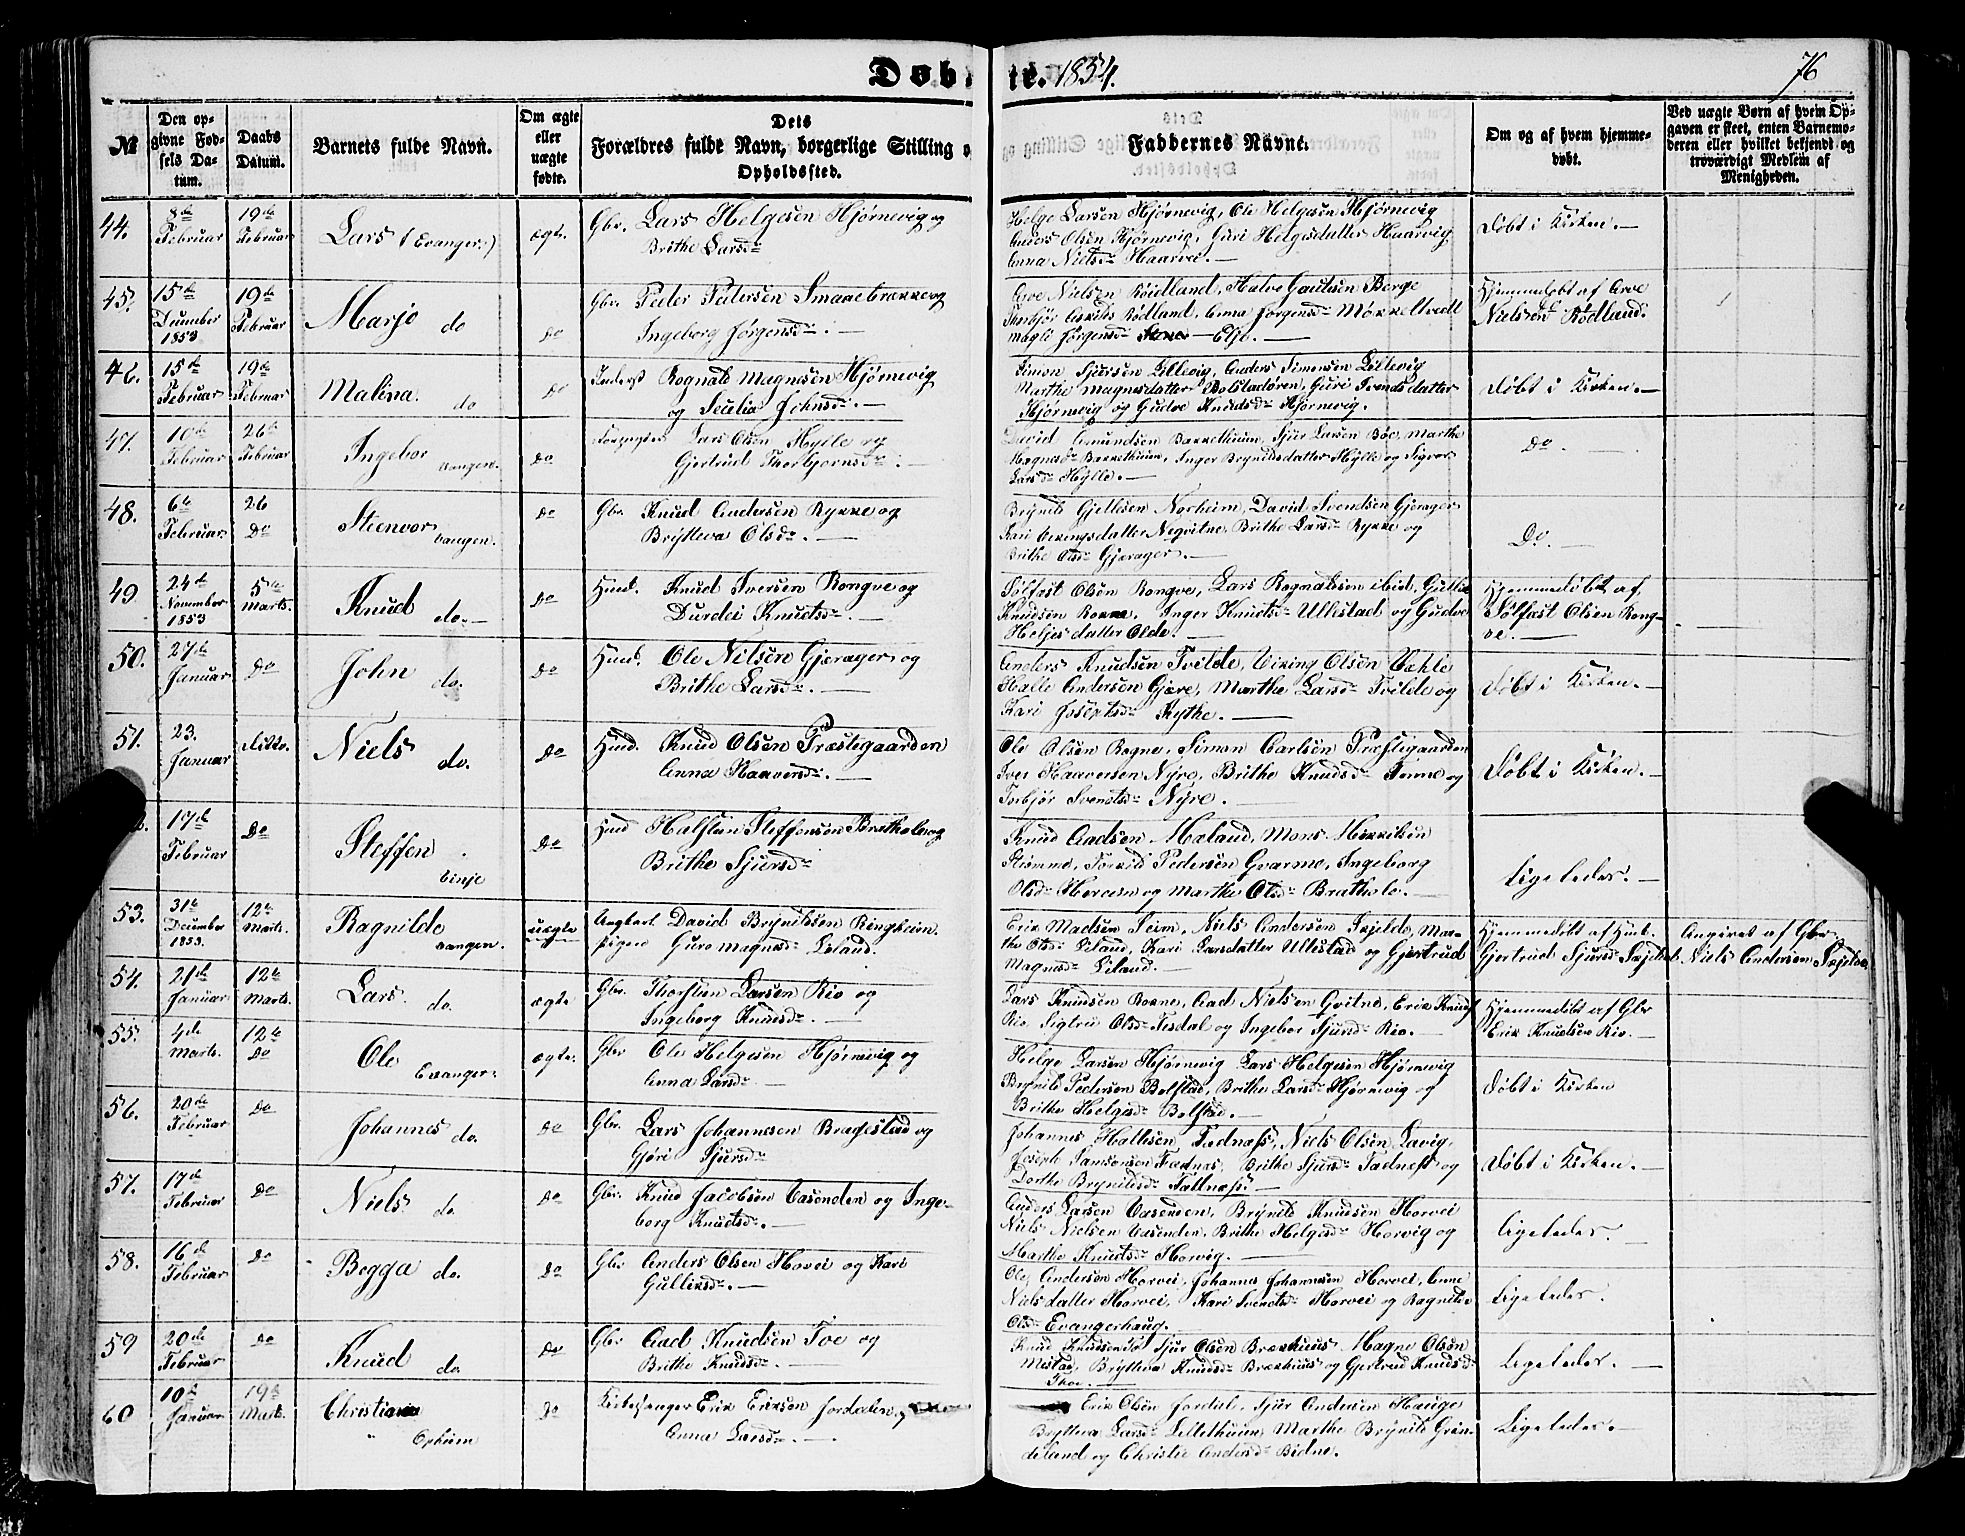 Døbte. 1854. 76
№ | Den opgivne Fødsels Datum. | Daabs Datum. | Barnets fulde Navn. | Om ægte eller uægte fødte. | Dets Forældres fulde Navn, borgerlige Stilling o Opholdssted. | Faddernes Navne. | Om og af hvem hjemmedøbt. | Ved uægte Børn af hvem Opgaven er skeet, enten Barnemoderen eller hvilket bekjendt og troværdigt Medlem af Menigheden.
44. 8de Februar 19de Februar Lars (Evanger.) ægte. Gbr. Lars Helgesen Hjørnevig og
Brithe Larsdr
Helge Larsen Hjørnevig, Ole Helgesen Hjørnevig
Anders Olsen Hjørnevig, Guri Helgesdatter Haarvig
Anna Nielsdr Haarvei. —
Døbt i Kirken. —
45. 15de December 1853 19de Februar Marjo do do Gbr Peder Pedersen Smaaebrække og
Ingeborg Jørgensdr. —
Arve Nielsen Rødland, Halve Gautsen Berge
Thorbjør Rødland, Anna Jørgensdr Møkkeltvedt
Magli Jørgensdr Elje. —
Hjemmedøbt af Arve
Nielsen Rødland.
46. 15de Februar 19de Februar Malina. do do Inderst Rognald Magnesen Hjørnevig
og Secelia Johnsdr. —
Simon Sjursen Lillevig, Anders Simonsen Lillevig
Marthe Magnesdatter Bolstadøren, Guri Svendsdatter
Hjørnevig og Gudve Knudsdr Hjørnevig.
Døbt i Kirken. —
47. 10de Februar 26de Februar Ingebor Vangen. do Lars Olsen Hylle og
Gjertrud Thorbjørnsdr. —
David Amundsen Bakkethuun, Sjur Larsen Bøe, Marthe
Magnesdr Bakkethuun, Inger Brynildsdatter Hylle og Sigvor
Larsdr Hylle. —
Do. —
48. 6te Februar 26 Do Steenvor Vangen. do Gbr Knud Andersen Rykke og
Bryteva Olsdr. —
Brynild Gjellesen Norheim, David Svendsen Gjerager
Kari Negvitne, Brithe Larsdr Rykke og
Brithe Olsdr Gjerager. —
Do. —
49 24de November 1853 5te Marts. Knud do. — do Husb. Knud Iversen Rongve og
Durdei Knudsdr. —
Sølfæst Olsen Rongve, Lars Rognaldsen ibid, Gullik
Knudsen Rokne, Inger Knudsdr Ullestad og Gudve
Heljesdatter Olde. —
Hjemmedøbt af
Sølfæst Olsen Rong-
ve. —
50. 27de Januar do John do. do Husb. Ole Nilsen Gjerager og
Brithe Larsdr. —
Anders Knudsen Tvilde, Viking Olsen Væhle
Halle Andersen Gjøre, Marthe Larsdr Tvilde og
Kari Josephsdr Kythe. —
Døbt i Kirken. —
51. 23. Januar ditto. Niels do. do Husb. Knud Olsen Præstegaarden
Anna Haaversdr. —
Ole Olsen Rogne, Simon Carlsen Præstegaarden
Iver Haaversen Nyre, Brithe Knudsdr Finne og
Torbjør Svendsdr Nyre. —
Døbt i Kirken. —
17de Februar do Steffen Vinje do Husb Halsten Steffensen Brathole og
Brithe Sjursdr
Knud Aadsen Mæland, Mons Henriksen
Strømme, Torkild Pedersen Gvarme, Ingeborg
Olsdr Herreim og Marthe Olsdr Brathole. —
Ligeledes. —
53. 31te December 1853. 12te Marts. Ragnilde Vangen. uægte Ungkarl David Brynildsen Ringheim.
pigen Guro Magnesdr Leland.
Erik Madsen Seim, Niels Andersen Skjelde, Mar-
the Olsdr Leland, Kari Larsdatter Ullestad og Gjertrud
Magnesdr Leland. —
Hjemmedøbt af Husb.
Gjertrud Sjursdr Skjelde
Angivet af Gbr
Niels Andersen Skjelde
54. 21de Januar 12te Marts. Lars. do. ægte Gbr. Thorsten Larsen Rio og
Ingeborg Knudsdr. —
Lars Knudsen Rokne, Aad Nielsen Gvitne, Erik Knuds
Rio, Sigtru Olsdr Tesdal og Ingebor Sjursdr Rio. —
Hjemmedøbt af Gbr
Erik Knudsen Rio. —
55. 4de Marts. 12te do Ole Evanger. ægte. Gbr Ole Helgesen Hjørnevig og
Anna Larsdr —
Helge Larsen Hjørnevig Lars Helgesen Hjørnevig
Brynild Pedersen Bolstad, Brithe Larsdr Hjørnevig og
Brithe Helgesdr Bolstad. —
Døbt i Kirken
56. 20de Februar do Johannes do. do Gbr. Lars Johannesen Bragestad og
Gjøri Sjursdr
Johannes Hallesen Fadnæss, Niels Olsen Lavig,
Joseph Samsonsen Fadnes, Brithe Sjursdr Fadness og
Dorthe Brynildsdr Fattnæss. —
Døbt i Kirken. —
57. 17de Februar do Niels do. do Gbr. Knud Jacobsen Væsenden og Inge-
borg Knudsdr. —
Anders Larsen Væsenden, Brynild Knudsen Horvei
Niels Nielsen Væsenden, Brithe Helgesdr Horvig og
Marthe Knudsdr Horvig. —
Ligeledes. —
58. 16de Februar do Begga do. do Gbr Anders Olsen Horvei og Kari
Gulliksdr. —
Ole Andersen Horvei, Johannes Johannesen Horvei, Anne
Nielsdatter Horvei, Kari Svendsdr Horvei og Ragnilde
Olsdr Evangerhaug.
Ligeledes.
59 20de Februar do Knud do. do Gbr Aad Knudsen Toe og
Brithe Knudsdr. —
Knud Knudsen To Sjur Olsen Brækhuus. Magne Olsen
Mestad, Bryteva Knudsdr Brækhuus og Gjertrud Knudsdr
Thoe. —
Ligeledes. —
60 10de Januar 19de Marts. Christian Opheim do Kirkesanger Erik Eriksen Jordalen og
Anna Larsdr. —
Erik Olsen Jordal, Sjur Andersen Hauge
Bryteva Larsdr Lillethuun, Marthe Brynilds Grøn-
deland og Christie Andersdr Bidne.
Ligeledes. —